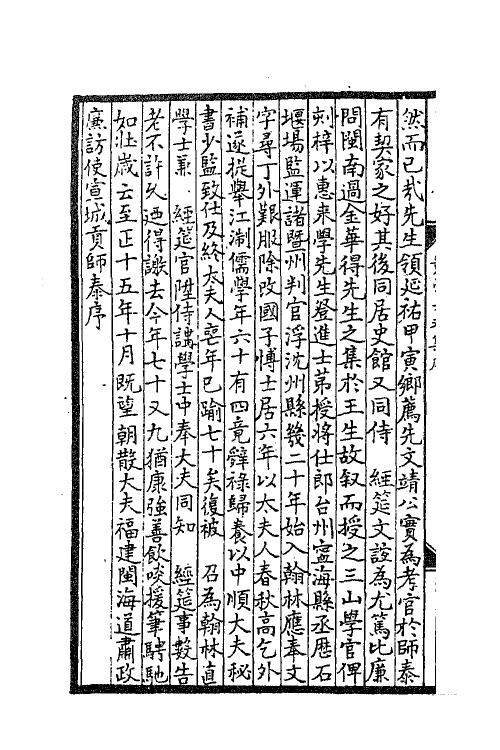 然而已哉先生領延祐甲寅鄉薦先文靖公實為考官於師泰
有契家之好其後同居史館又同侍　經筵文誼為尤篤比廉
問閩南過金華得先生之集於王生故叙而授之三山學官俾
刻梓以惠來學先生登進士第授將仕郎台州寧海縣丞歷石
堰場監運諸暨州判官浮沈州縣幾二十年始入翰林應奉文
字尋丁外艱服除改國子博士居六年以太夫人春秋高乞外
補遂提舉江淛儒學年六十有四竟辭祿歸養以中順大夫秘
書少監致仕及終太夫人喪年已踰七十矣復被　召為翰林直
學士兼　經筵官陞侍講學士中奉大夫同知　經筵事數告
老不許久迺得謝去今年七十又九猶康強善飲啖援筆騁馳
如壯歲云至正十五年十月既望朝散大夫福建閩海道肅政
廉訪使宣城貢師泰序